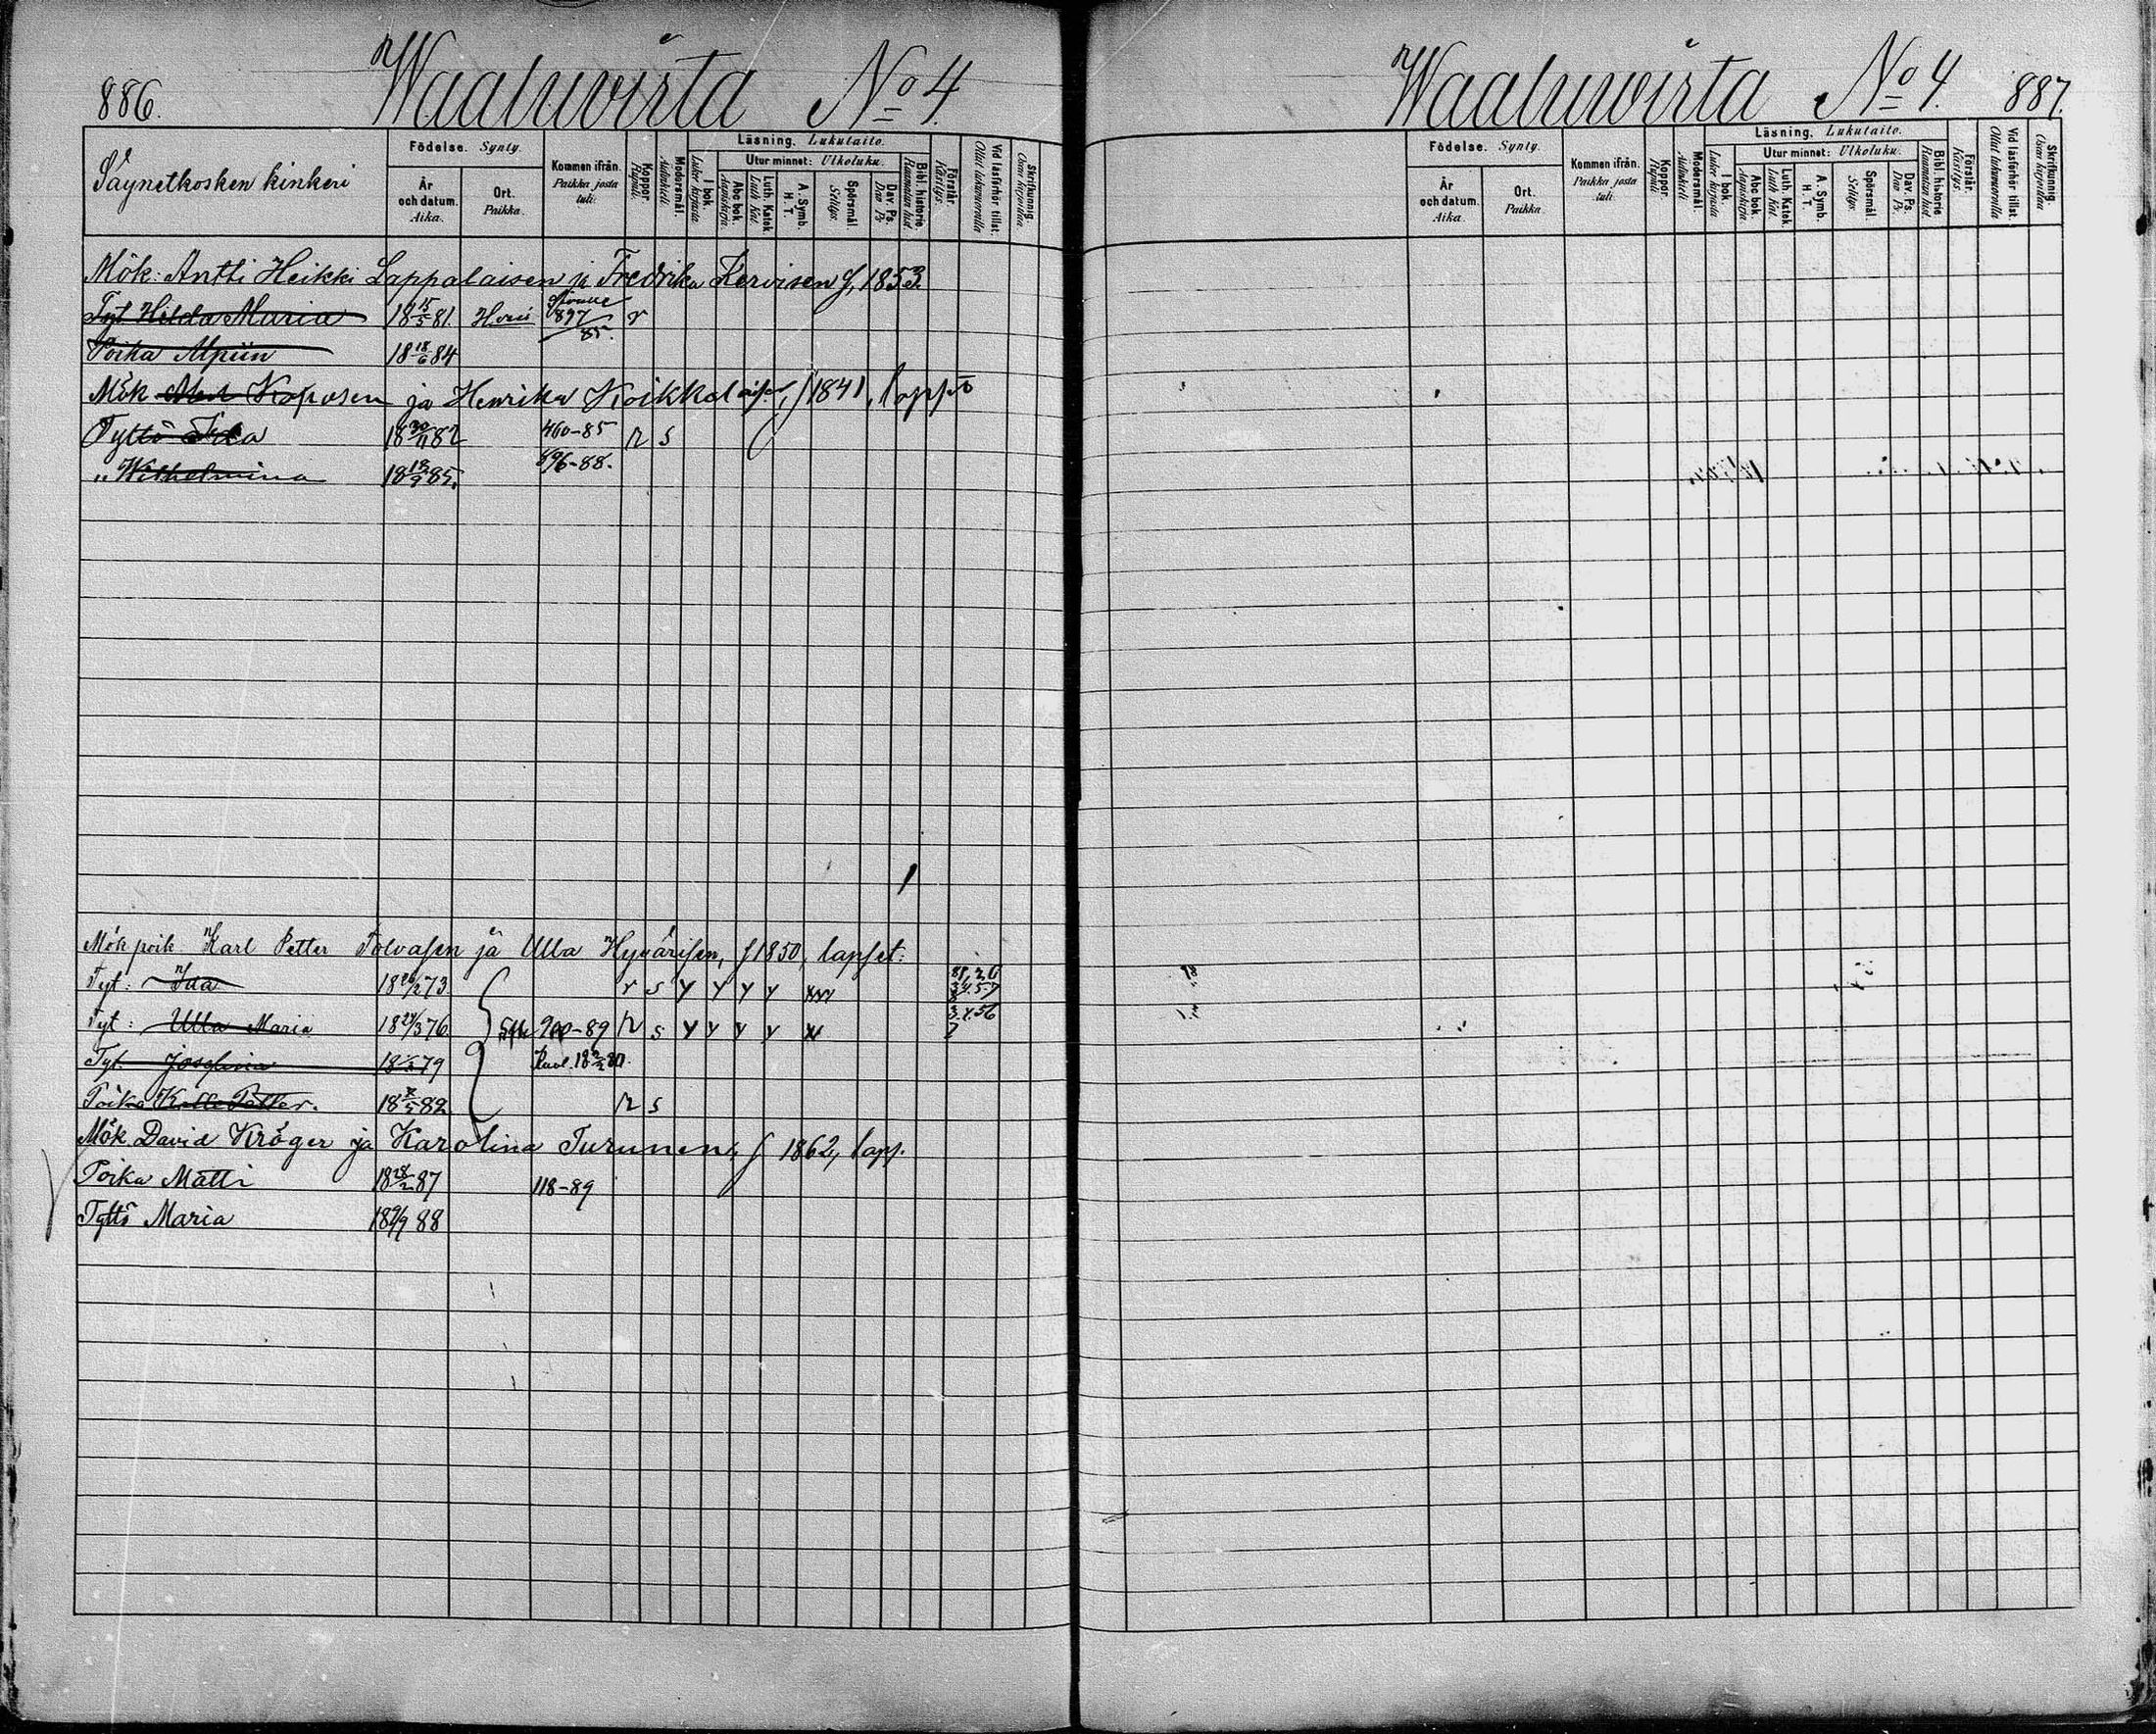 886. Waaluwirta No 4.
Säynetkosken kinkeri
Födelse. Synty.
År och datum. Aika.
Ort. Paikka.
Kommen ifrån. Paikka josta tuli.
Koppor. Rupuli.
Modersmål. Äidinkieli
Läsning. Lukutaito.
I bok. Lukee kirjasta
Utur minnet: Ulkoluku.
Abc bok. Aapiskirja.
Luth. Katek. Luth Kat.
A. Symb. H. T.
Spörsmål. Selitys.
Dav. Ps. Dav Ps
Bibl. historie Raamatun hist.
Förstår. Käsitys.
Vid läsförhör tillst. Ollut lukuvuorolla
Skrifkunnig. Osaa kirjoittaa
Mök: Antti Heikki Lappalaisen ja Fredrika Kervisen f, 1853.
Tyt Hilda Maria 18 15/5 81. 897/85. r
Poika Alpiin 18 18/6 84
Mök Koposen ja Henrika Koikkalaisen, f 1841, lapset
Tyttö Ida 18 30/11 82 460-85 r s
" Wilhelmina 18 18/9 85. 896-88.
Mök poik. Karl Petter Tolvasen ja Ulla Hyvärisen, f 1850, lapset:
Tyt: Ida 18 26/2 73 r s y y y y
Tyt: Ulla Maria 18 24/3 76 900-89 r s y y y y 3.4.56 7
Tyt. Josefina 79
Poika Kalle Petter. 82 r s
Mök David Kröger ja Karolina Turunen, f 1862, laps.
Poika Matti 18 28/2 87 118-89
Tyttö Maria 88
Waaluwirta No 4. 887.
Födelse. Synty.
År och datum. Aika.
Ort. Paikka.
Kommen ifrån. Paikka josta tuli.
Koppor. Rupuli
Modersmål. Äidinkieli
Läsning. Lukutaito.
I bok. Lukee kirjasta
Utur minnet: Ulkoluku.
Abc bok. Aapiskirja.
Luth. Katek. Luth Kat.
A. Symb. H. T.
Spörsmål. Selitys.
Dav. Ps. Dav Ps
Bibl. historie Raamatun hist.
Förstår. Käsitys.
Vid läsförhör tillst. Ollut lukuvuorolla
Skrifkunnig. Osaa kirjoittaa